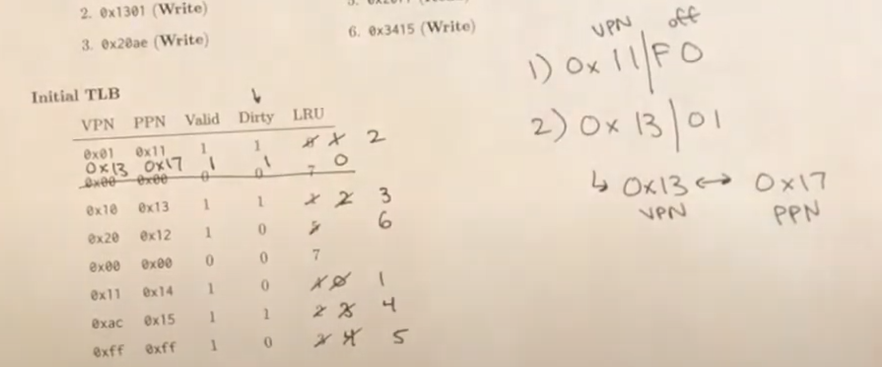 2. 0x1301 (Write)
3. 0x20ae (Write)
6. 0x3415 (Write)
Initial TLB
VPN PPN Valid Dirty LRU
0x01 0x11 1 1 2
0x13 0x17 1 1 0
0x00 0x00 0 0 7
0x10 0x13 1 1 2 3
0x20 0x12 1 0 6
0x00 0x00 0 0 7
0x11 0x14 1 0 0 1
0xac 0x15 1 1 2 3 4
0xff 0xff 1 0 4 5
VPN off
1) 0x11|F0
2) 0x13|01
↳ 0x13 ↔ 0x17
VPN PPN